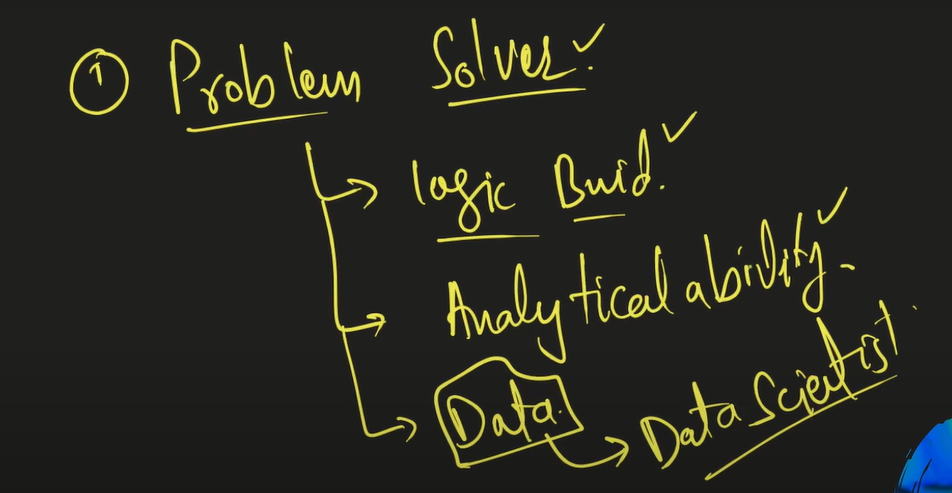 ① Problem Solver ✓
→ logic Buid. ✓
→ Analytical ability. ✓
→ Data. → Data Scientist.